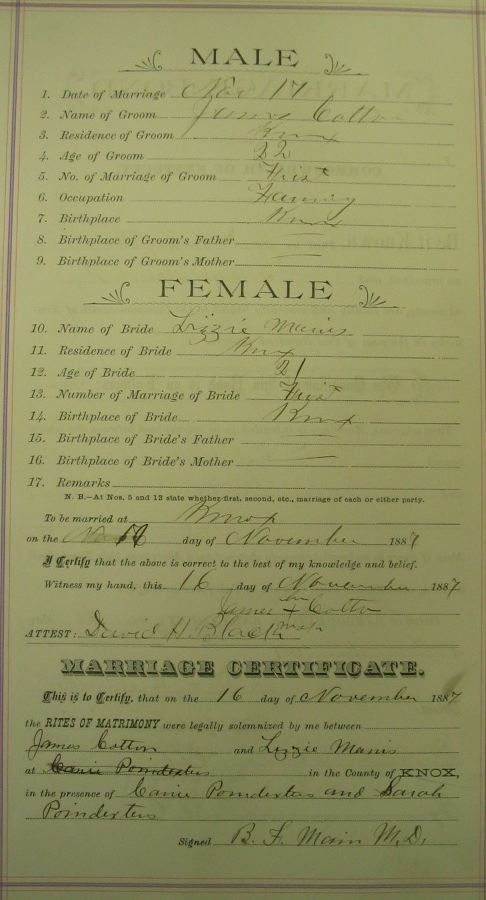 MALE
1. Date of Marriage Nov 17
2. Name of Groom James Cotton
3. Residence of Groom Knox
4. Age of Groom 22
5. No. of Marriage of Groom First
6. Occupation Farming
7. Birthplace Knox
8. Birthplace of Groom's Father —
9. Birthplace of Groom's Mother —
FEMALE
10. Name of Bride Lizzie Manis
11. Residence of Bride Knox
12. Age of Bride 21
13. Number of Marriage of Bride First
14. Birthplace of Bride Knox
15. Birthplace of Bride's Father —
16. Birthplace of Bride's Mother —
17. Remarks
N. B.—At Nos. 5 and 13 state whether first, second, etc., marriage of each or either party.
To be married at Knox
on the 16 day of November 1887
I Certify that the above is correct to the best of my knowledge and belief.
Witness my hand, this 16 day of November 1887
his
James + Cotton
mark
ATTEST: David H. Black
MARRIAGE CERTIFICATE.
This is to Certify, that on the 16 day of November 1887
the RITES OF MATRIMONY were legally solemnized by me between
James Cotton and Lizzie Manis
at Carrie Poindexters in the County of KNOX,
in the presence of Carrie Poindexters and Sarah
Poindexters
Signed B. F. Main M.D.